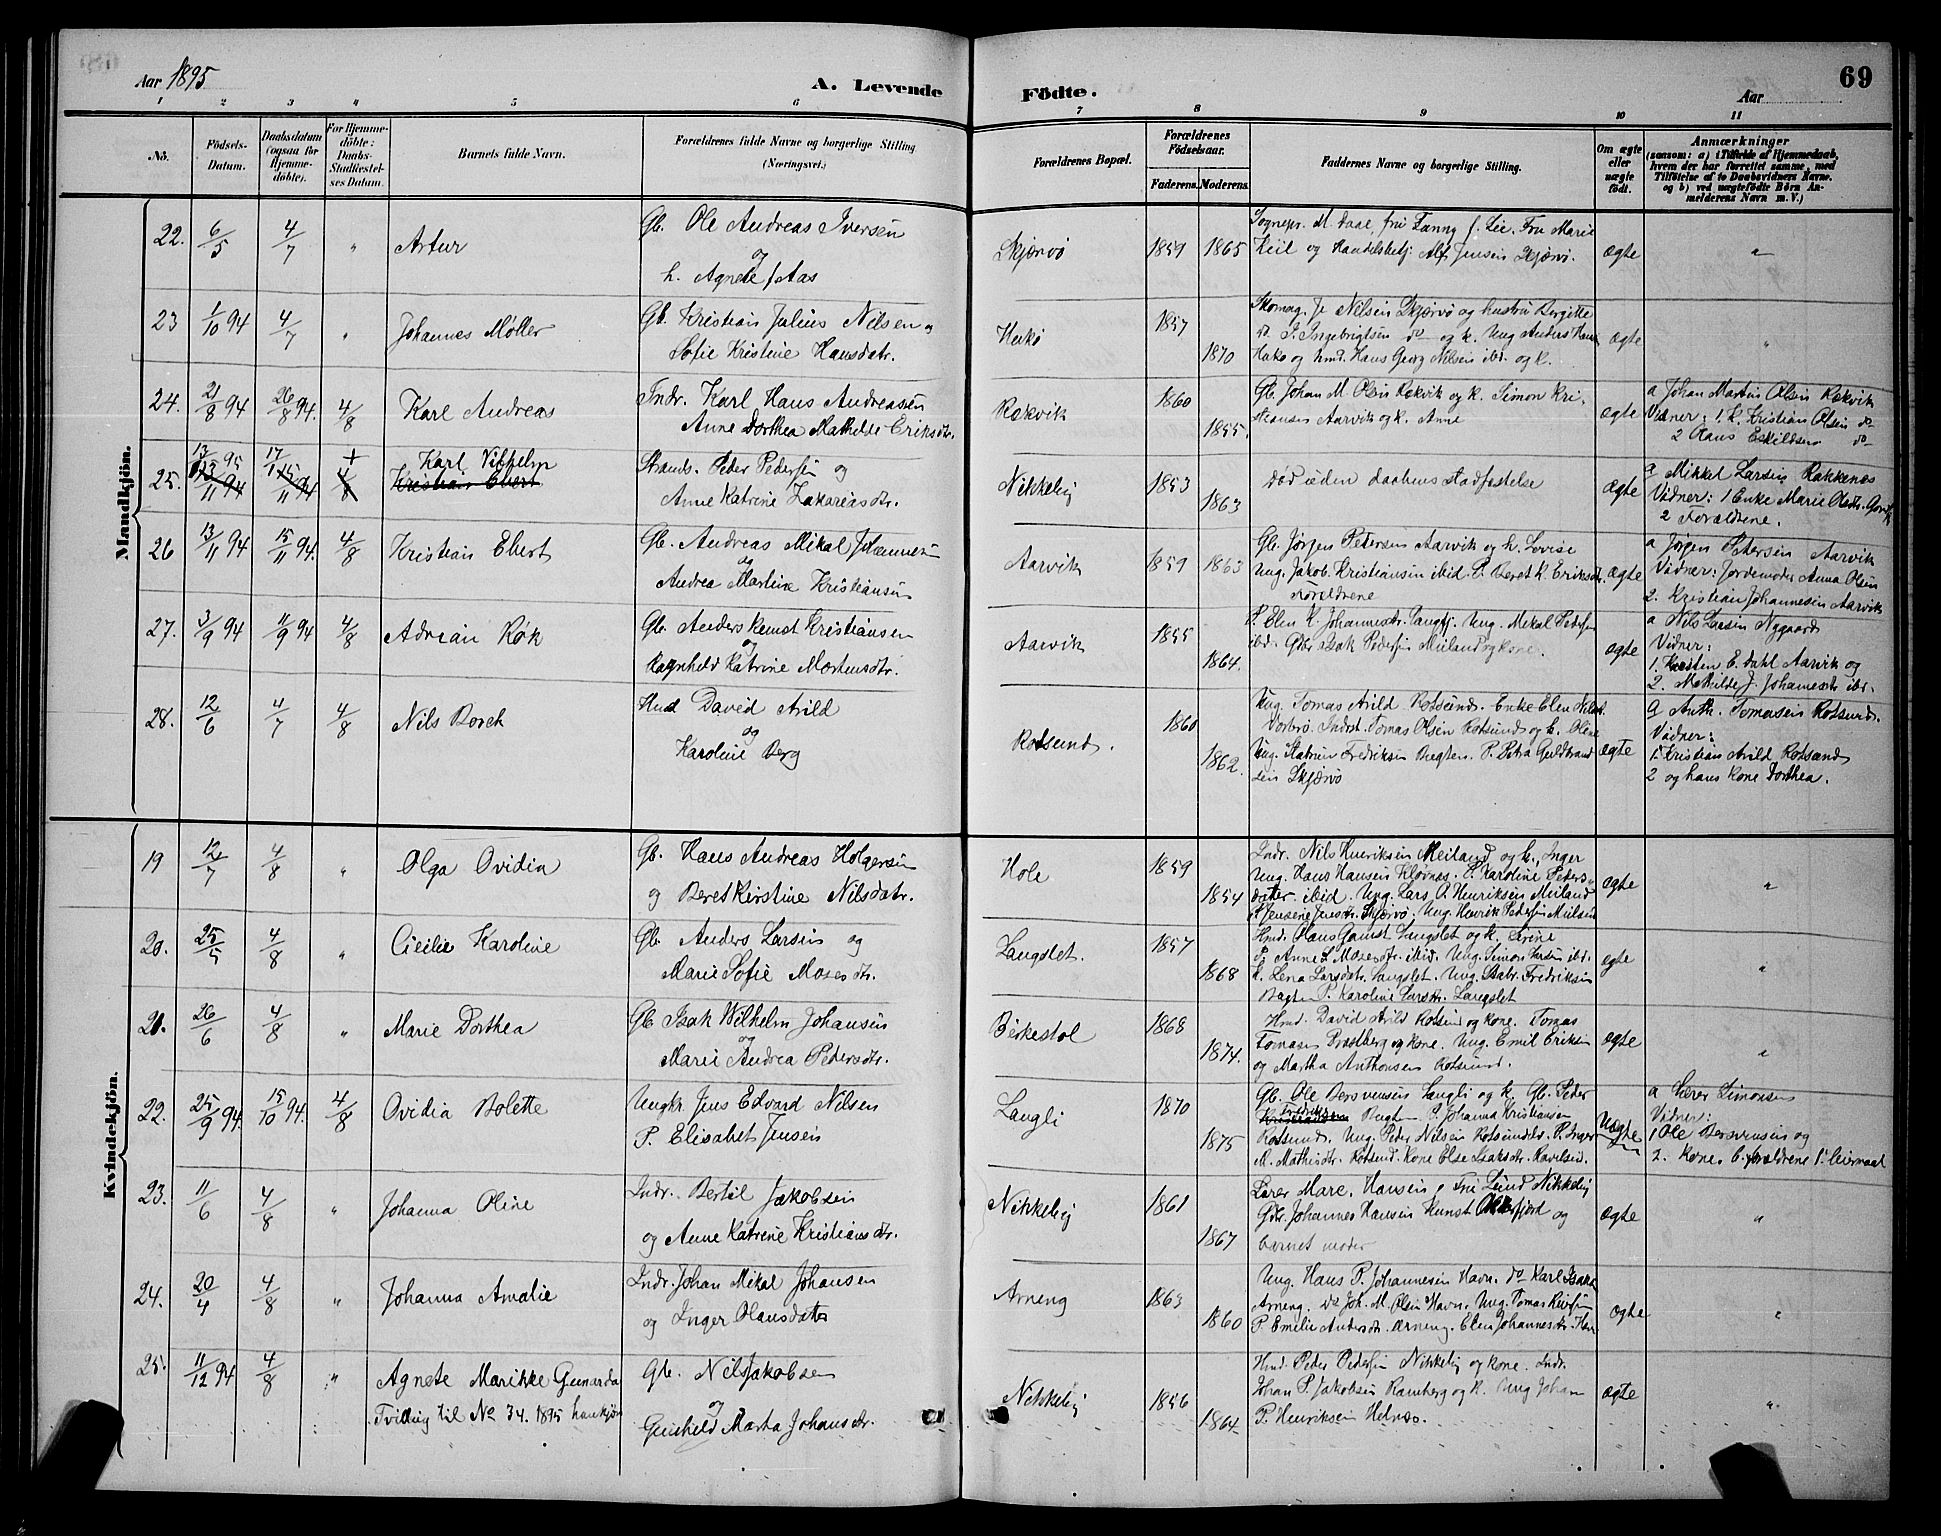 Aar 1895
A. Levende Födte.
69
Aar
1 2 3 4 5 6 7 8 9 10 11
No.
Födsels-Datum.
Daabsdatum (ogsaa for Hjemmedöbte).
For Hjemmedöbte: Daabs-Stadfæstelses Datum.
Barnets fulde Navn.
Forældrenes fulde Navne og borgerlige Stilling (Næringsvei.)
Forældrenes Bopæl.
Forældrenes Födselsaar.
Faderens. Moderens.
Faddernes Navne og borgerlige Stilling.
Om ægte eller uægte födt.
Anmærkninger
(saasom: a) i Tilfælde af Hjemmedaab, hvem der har forrettet samme, med Tilföielse af to Daabsvidners Navne, og b) ved uægtefödte Börn Anmelderens Navn m. V.)
Mandkjön.
22. 6/5 4/7 " Artur
Gb. Ole Andreas Iversen
og
h. Agnete f. Aas
Skjærvö 1859 1865
Sognepr. M. Daae, fru Fanny f. Lie. Fru Marie
Keil og Handelsbetj. Alf Jensen Skjærvö.
Ægte "
23 1/10 94 4/7 " Johannes Möller
Gb. Kristian Julius Nilsen og
Sofie Kristine Hansdatr.
Hakö 1857 1870
Skomag. J. Nilsen Skjærvö og hustru Bergitte
do J. Ingebrigtsen do og k. Ung Anders Hans
Hakö og Hmd. Hans Georg Nilsen ibd. og k.
ægte "
24. 21/8 94 26/8 94. 4/8 Karl Andreas
Indr. Karl Hans Andreasen
Anne Dorthea Mathilde Eriksdtr.
Rökvik 1860 1855.
Gb. Johan M. Olsen Rökvik og k. Simon Kri-
stiansen Aarvik og k. Anne
ægte
a Johan Martin Olsen Rökvik
Vidner: 1. k. Kristian Olsen do
2 Hans Eskildsen do
25. 13/11 94 15/11 94 4/8 Karl Vilhelm
Kristian Ebert
Strands. Peder Pedersen og
Anne Katrine Zakariasdtr.
Nikkeby 1853 1863
død uden daabens stadfæstelse
Ægte
a Mikkel Larsen Rakkenæs
Vidner: 1 Enke Marie Olsdtr.
2 Forældrene.
26 13/11 94 15/11 94. 4/8 Kristian Ebert
Gb. Andreas Mikal Johannesen
og
Andrea Martine Kristiansen
Aarvik 1859 1863
Gb. Jörgen Petersen Aarvik og h. Lovise
Ung. Jakob Kristiansen ibid. P. Beret K. Eriksdtr.
Forældrene
ægte
a Jörgen Petersen Aarvik
Vidner: Jordemoder Anna Olsen
2. Kristian Johannesen Aarvik
27. 3/9 94 11/9 94 4/8 Adrian Rök
Gb. Anders Kunst Kristiansen
og
Ragnhild Katrine Mortensdtr.
Aarvik 1855 1864.
P. Elen K. Johannesdtr. Langfj. Ung. Mikal Pedersen
ibd. Gbr Isak Pedersen Meiland og kone.
ægte
a Nils Larsen Nygaard
Vidner:
1. Kirsten E. Dahl Aarvik og
2. Mathilde J. Johannesdtr ibd.
28. 12/6 4/7 4/8 Nils Borch
Hmd David Arild
og
Karoline Berg
Rotsund. 1860 1862.
Ung. Tomas Arild Rotsund. Enke Elen Nilsd.
Indrst. Tomas Olsen Rotsund og k. Oline
Ung. Katrine Fredriksen Bugten. P. Petra Guldbrand
sen Skjærvö
ægte
a Anth. Tomasen Rotsund.
Vidner:
1. Kristian Arild Rotsund
2 og hans kone Dorthea.
Kvindekjön.
19 12/7 4/8 " Olga Ovidia
Gb. Hans Andreas Holgersen
og Beret Kirstine Nilsdatr.
Hole 1859 1854
Indr. Nils Henriksen Meiland og k. Inger
Ung. Hans Hansen Klovnæs. P. Karoline Peders-
datter ibid. Ung. Lars A. Henriksen Meiland
P. Jensine Jensdtr. Skjærvö. Ung. Henrik Pedersen
ægte "
20. 25/5 4/8 " Cicilie Karoline
Gb. Anders Larsen og
Marie Sofie Mosesdtr.
Langslet. 1857 1868
Hmd. Hans Gamst Langslet og k. Sirine
P. Anne S. Mosesdtr. ibid. Ung. Simon Larsen ibd.
k. Lena Larsdatr. Langslet. Ung. Fredriksen
Bugten P. Karoline Larsdtr. Langslet
ægte "
21. 26/6 4/8 " Marie Dorthea
Gb. Isak Wilhelm Johansen
og
Marie Andrea Pedersdtr.
Birkestol 1868 1874.
Hmd. David Arild Rotsund og kone. Tomas
Tomasen Bratberg og kone. Ung. Emil Eriksen
og Martha Anthonsen Rotsund.
ægte "
22. 25/9 94. 15/10 94. 4/8 Ovidia Bolette
Ungkr. Jens Edvard Nilsen
P. Elisabet Jensen
Langli 1870 1875
Gb. Ole Bersvensen Langli og k. Gb. Peder
Kristiansen Fredriksen Bugten P. Johanna Kristiansen
Rotsund. Ung. Peder Nilsen Rotsundelv. P. Inger
M. Mathisdtr. Rotsund. Kone Else Isaksdtr. Ravelseid.
Uægte
a Lærer Simonsen
Vidner:
1 Ole Bersvensen og
2. Kone. C. forældrene 1ste leiermaal
23. 11/6 4/8 " Johanna Oline
Indr. Bertil Jakobsen
og Anne Katrine Kristiansdtr.
Nikkeby 1861 1867
Lærer Marc. Hansen og Fru Lund Nikkeby
Gbr. Johannes Hansen Kunst Olderfjord og
barnets moder
ægte "
24. 20/4 4/8 " Johanna Amalie
Indr. Johan Mikal Johansen
og Inger Olausdatter
Arneng 1863 1860
Ung. Hans P. Johannesen Havn. do Karl Isaks.
Arneng. do Joh. M. Olsen Havn. Ung. Tomas
P. Emilie Andersdtr. Arneng. Elen Johannesdtr. Havn
ægte "
25. 11/12 94 4/8 " Agnete Marikke Gunarda
Tvilling til No 34. 1895 hankjön
Gb. Nils Jakobsen
og
Gunhild Marta Johansdtr.
Nikkeby 1856 1864
Hmd. Peder Pedersen Nikkeby og kone. Indr.
Johan P. Jakobsen Ramberg og k. Ung Johan
P. Henriksen Helnæs.
ægte "